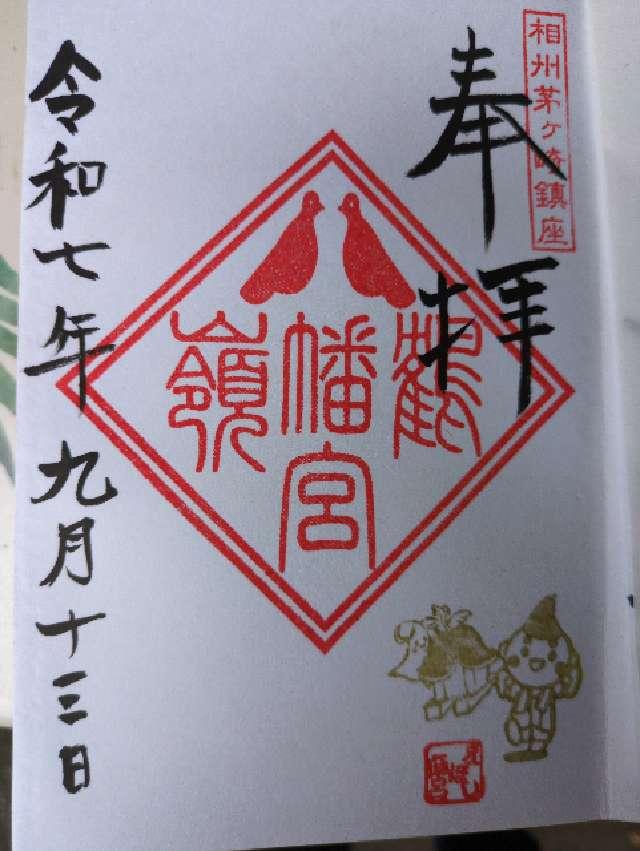 相州茅ヶ崎鎮座
奉拝
鶴
嶺
八幡宮
令和七年 九月十三日